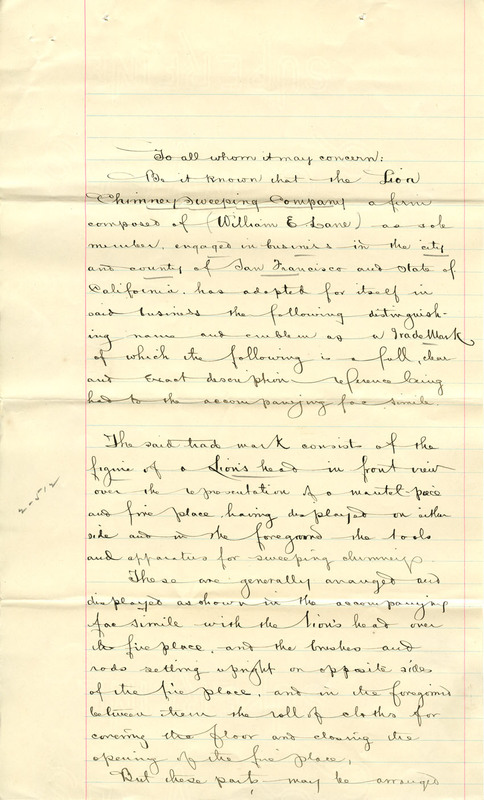 To all whom it may concern:
Be it known that the Lion
Chimney Sweeping Company a firm
composed of (William E Lane) as sole
member, engaged in business in the city
and county of San Francisco and State of
California. has adopted for itself in
said business the following distinguish-
ing name and emblem as a Trade Mark
of which the following is a full, clear
and exact description reference being
had to the accompanying fac simile.
The said trade mark consist of the
figure of a Lion's head in front view
over the representation of a mantel piece
and fire place. having displayed on either
side and in the foreground the tools
and apparatus for sweeping chimneys.
These are generally arranged and
displayed as shown in the accompanying
fac simile with the lion's head over
the fire place, and the brushes and
rods setting upright on opposite sides
of the fire place, and in the foreground
between them the roll of cloths for
covering the floor and closing the
opening of the fire place.
But these parts may be arranged
2-512